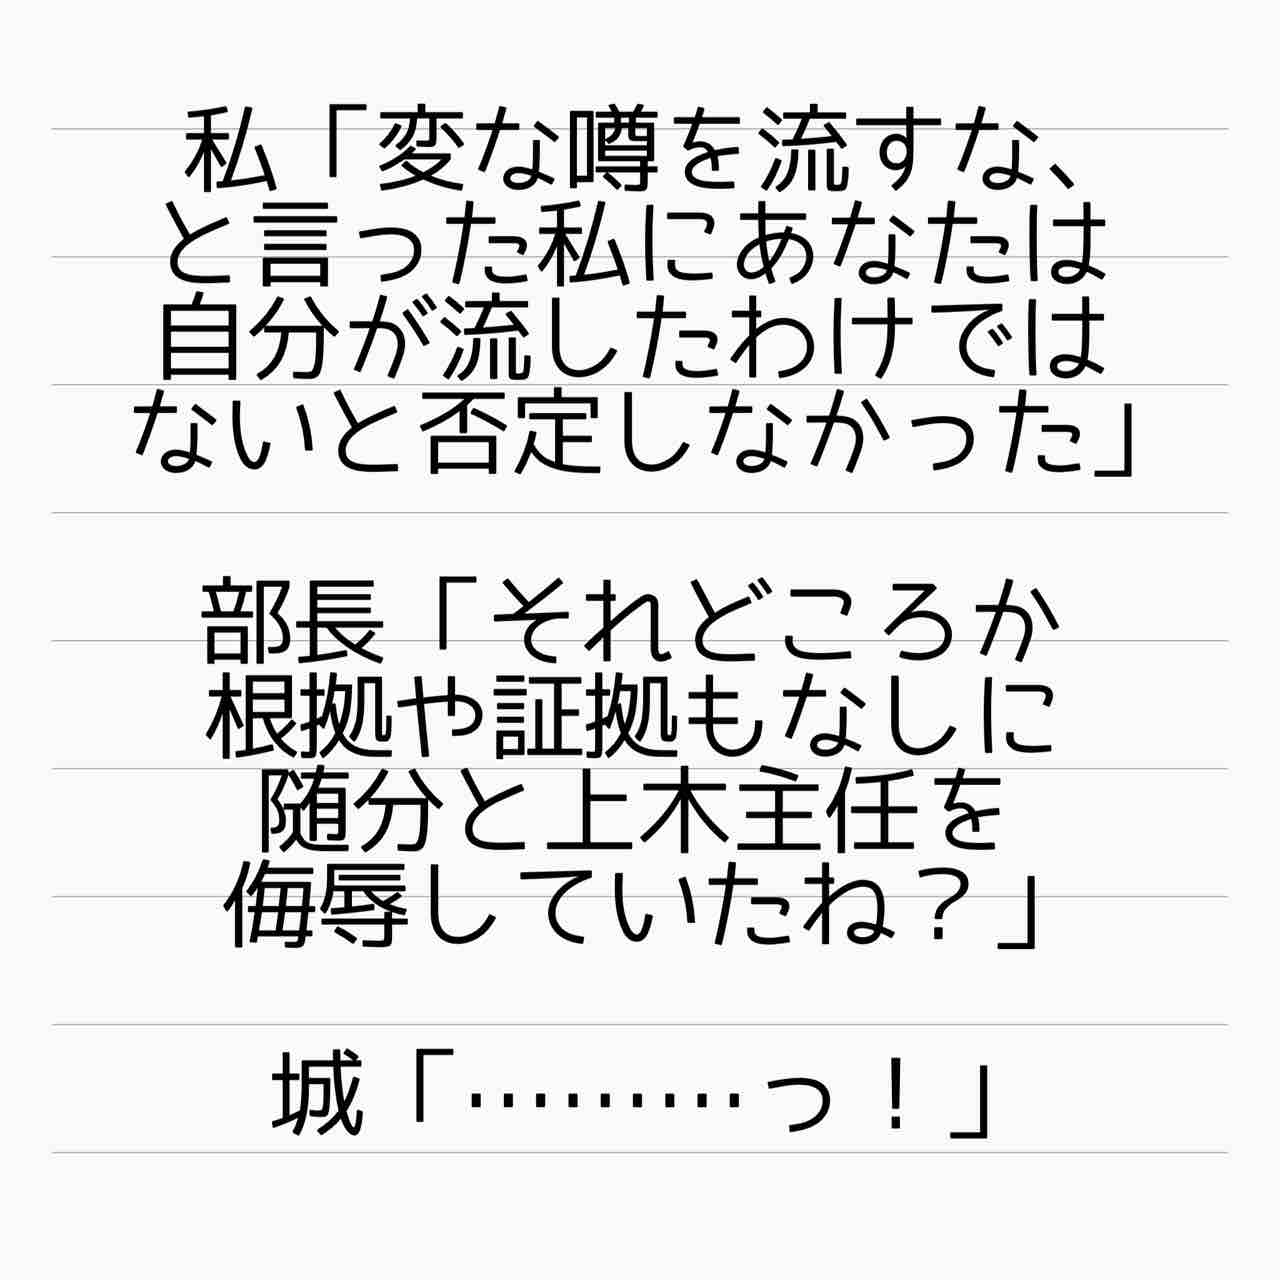 私「変な噂を流すな、
と言った私にあなたは
自分が流したわけでは
ないと否定しなかった」
部長「それどころか
根拠や証拠もなしに
随分と上木主任を
侮辱していたね？」
城「………っ！」